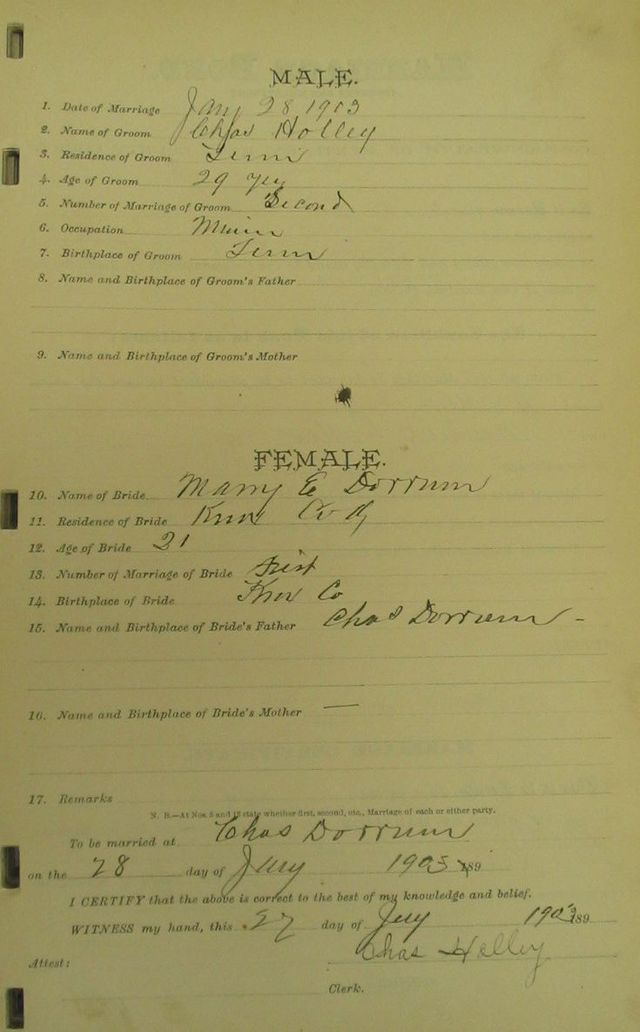 MALE.
1. Date of Marriage Jany 28 1903
2. Name of Groom Chas Holley
3. Residence of Groom Tenn
4. Age of Groom 29
5. Number of Marriage of Groom Second
6. Occupation
7. Birthplace of Groom Tenn
8. Name and Birthplace of Groom's Father
9. Name and Birthplace of Groom's Mother
FEMALE.
10. Name of Bride Marry E Dorrum
11. Residence of Bride Knox Co
12. Age of Bride 21
13. Number of Marriage of Bride First
14. Birthplace of Bride Knx Co
15. Name and Birthplace of Bride's Father Chas Dorrum -
16. Name and Birthplace of Bride's Mother —
17. Remarks
N. B.—At Nos. 5 and 13 state whether first, second, etc., Marriage of each or either party.
To be married at Chas Dorrum
on the 28 day of Jany 1903 189
I CERTIFY that the above is correct to the best of my knowledge and belief.
WITNESS my hand, this 27 day of Jny 1903 189
Chas Holley
Attest:
Clerk.